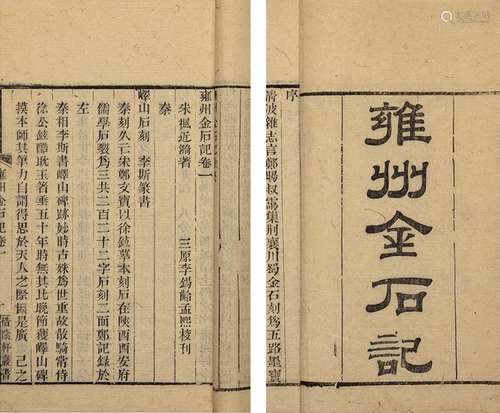 雍州金石記
序
清波雜志言鄭暘叔靄集荆襄川蜀金石刻爲五路墨寶
雍州金石記卷一
朱楓近漪著　三原李錫齡孟熙校刊
秦
嶧山石刻　李斯篆書
秦刻久亡宋鄭文寶以徐鉉摹本刻石在陝西西安府
儒學石裂爲三共二百二十二字石刻二面鄭記錄於
左
秦相李斯書嶧山碑跡妙時古殊爲世重故散騎常侍
徐公鉉酷耽玉箸垂五十年時無其比晚節獲嶧山碑
摸本師其筆力自謂得思於天人之際因是廣　己之
雍州金石記卷一　一　惜陰軒叢書